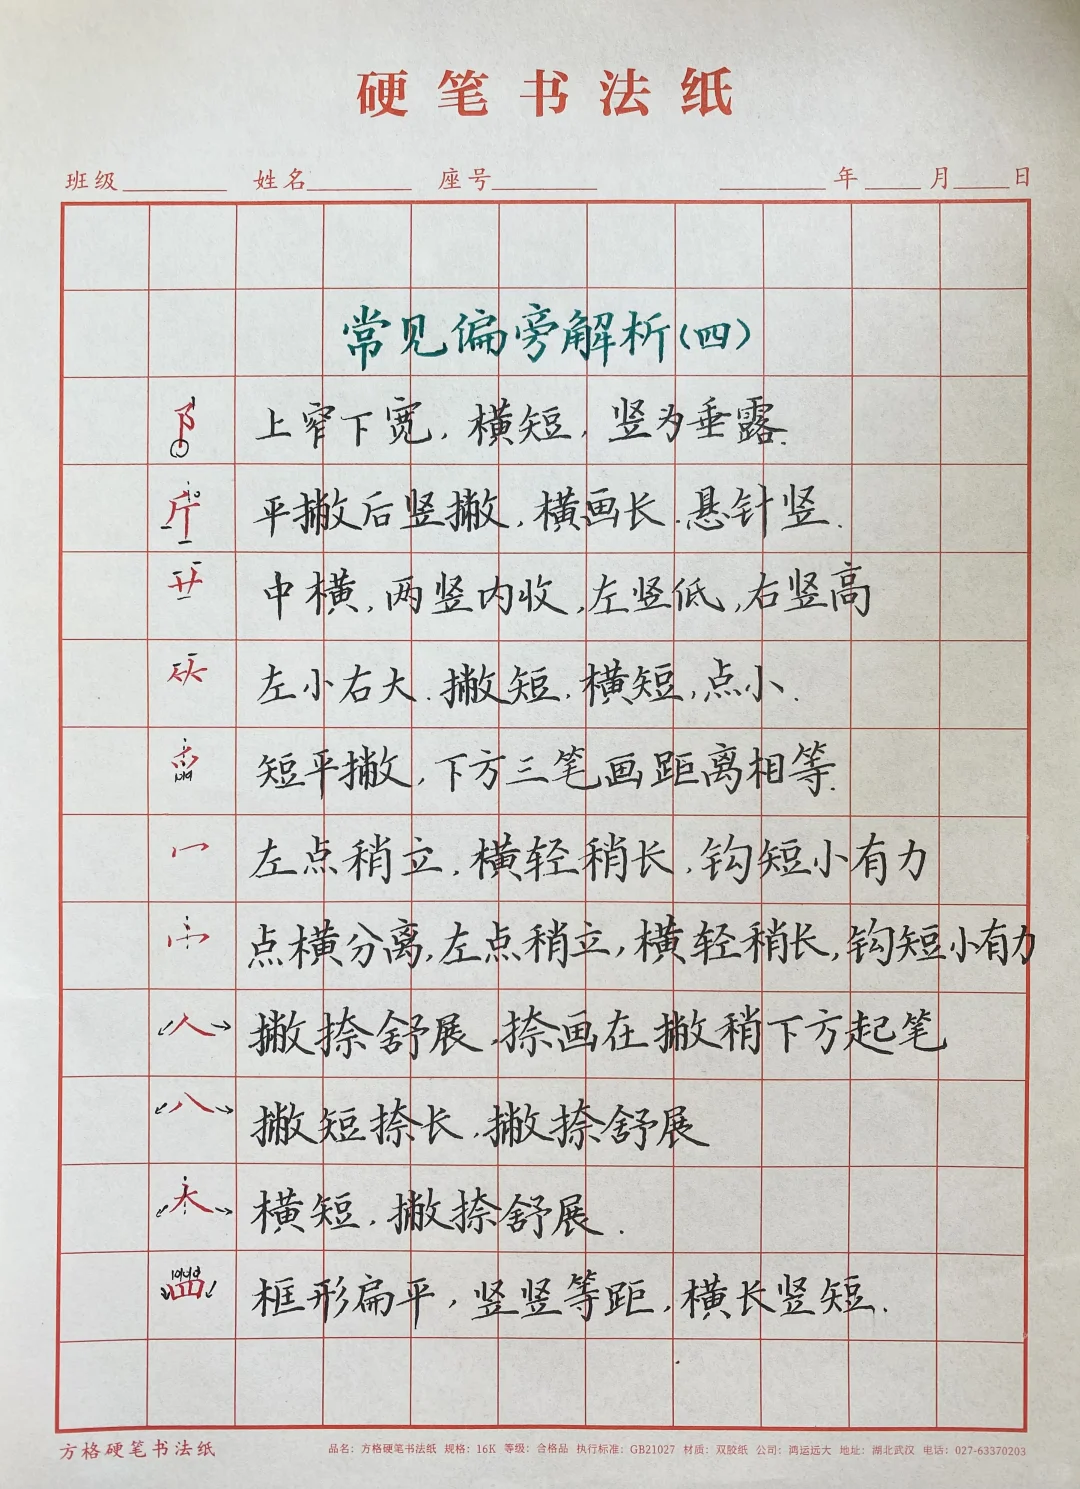 硬笔书法纸
班级 姓名 座号 年 月 日
常见偏旁解析(四)
阝 上窄下宽,横短,竖为垂露.
斤 平撇后竖撇,横画长.悬针竖.
中横,两竖内收,左竖低,右竖高
左小右大.撇短.横短,点小.
短平撇,下方三笔画距离相等.
冖 左点稍立,横轻稍长,钩短小有力
宀 点横分离,左点稍立,横轻稍长,钩短小有力
人 撇捺舒展.捺画在撇稍下方起笔
八 撇短捺长,撇捺舒展
横短,撇捺舒展.
罒 框形扁平,竖竖等距,横长竖短.
方格硬笔书法纸 品名:方格硬笔书法纸 规格:16K 等级:合格品 执行标准:GB21027 材质:双胶纸 公司:鸿运远大 地址:湖北武汉 电话:027-63370203